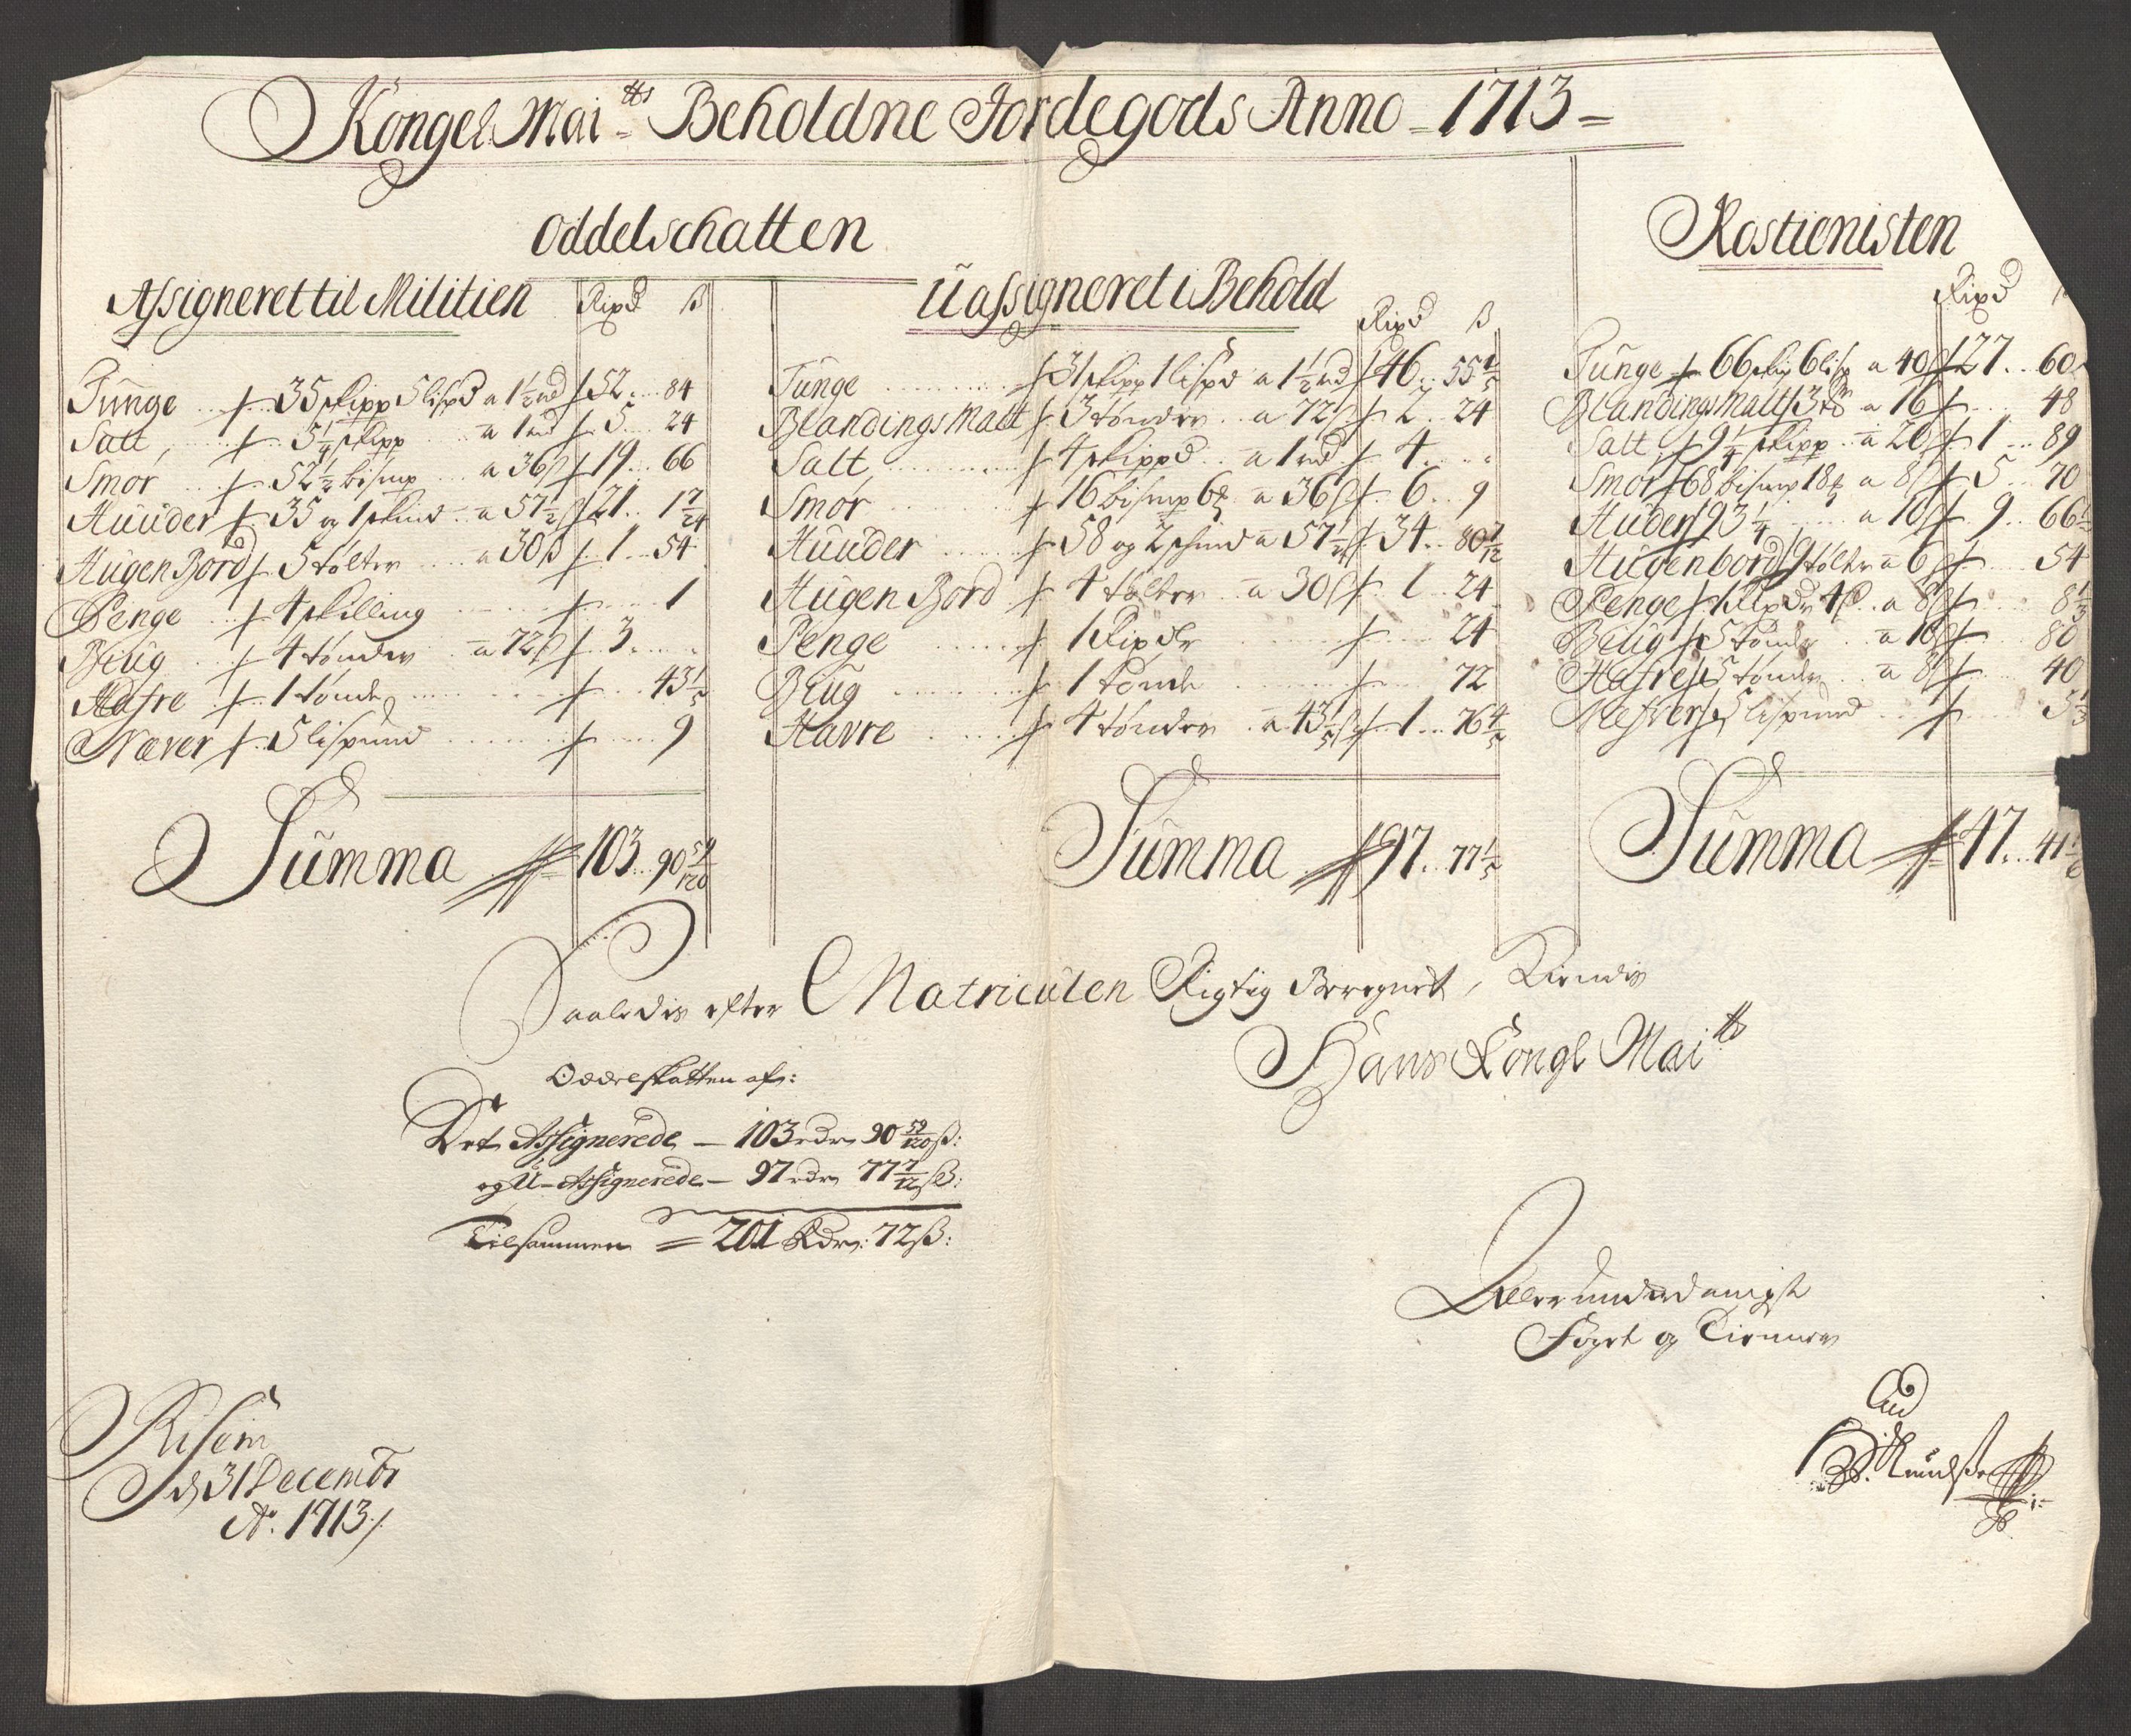 Kongel Mai.tts Beholdne Jordegods Anno = 1713 =
Oddelschatten
Assigneret til Militien Rixd ß
Tunge 35 skipp 5 lispd a 1½ rd 52 84
Salt 5¼ skipp a 1 rd 5 24
Smør 52½ bismp a 36ß 19 66
Huuder 35 og 1 skind a 57½ß 21 1 7/24
Hugen Bord 5 tolter a 30ß 1 54
Penge 4 skilling 1
Biug 4 tønder a 72ß 3
Hafre 1 tønde 43 1/5
Næver 5 lispund 9
Summa 103 90 59/120
Uassigneret i Behold Rixd ß
Tunge 31 skipp 1 lispd a 1½ rd 46 55 1/5
Blandings Malt 3 tønder a 72ß 2 24
Salt 4 skippd a 1 rd 4
Smør 16 bismp 6 a 36ß 6 9
Huuder 58 og 2 skind a 57½ß 34 80 7/12
Hugen Bord 4 tolter a 30ß 1 24
Penge 1 Rixdr 24
Biug 1 tønde 72
Havre 4 tønder a 43 1/5 ß 1 76 4/5
Summa 97 77
Rostienisten
Rixd
Tunge 66 skip 6 lisp a 40ß 27 60
Blandings Malt 3 a 16 48
Salt 9¼ skipp a 20ß 1 89
Smør 68 bismp 18 a 8ß 5 70
Huder 93¼ a 10ß 9 66
Hugenbord 9 tolter a 6ß 54
Penge 1 Rixdr 4ß a 8ß 8 1/3
Beug 5 tønder a 16ß 80
Hafre 5 tønder a 8ß 40
Nefver 5 lispund
Summa 47 41
Saaledis efter Matriculen Rigtig Beregnet, Kiendis
Hans Kongl Maitts
Oddelskatten af:
Det Assignerede — 103 rdr 90 59/120 ß:
og U-Assignerede — 97 rdr 77 7/12 ß:
Tilsammen = 201 Rdr: 72ß:
Allerunderdanigste
Foget og Tienner
Aud
Risem
d 31 Decembr
Ao. 1713 /